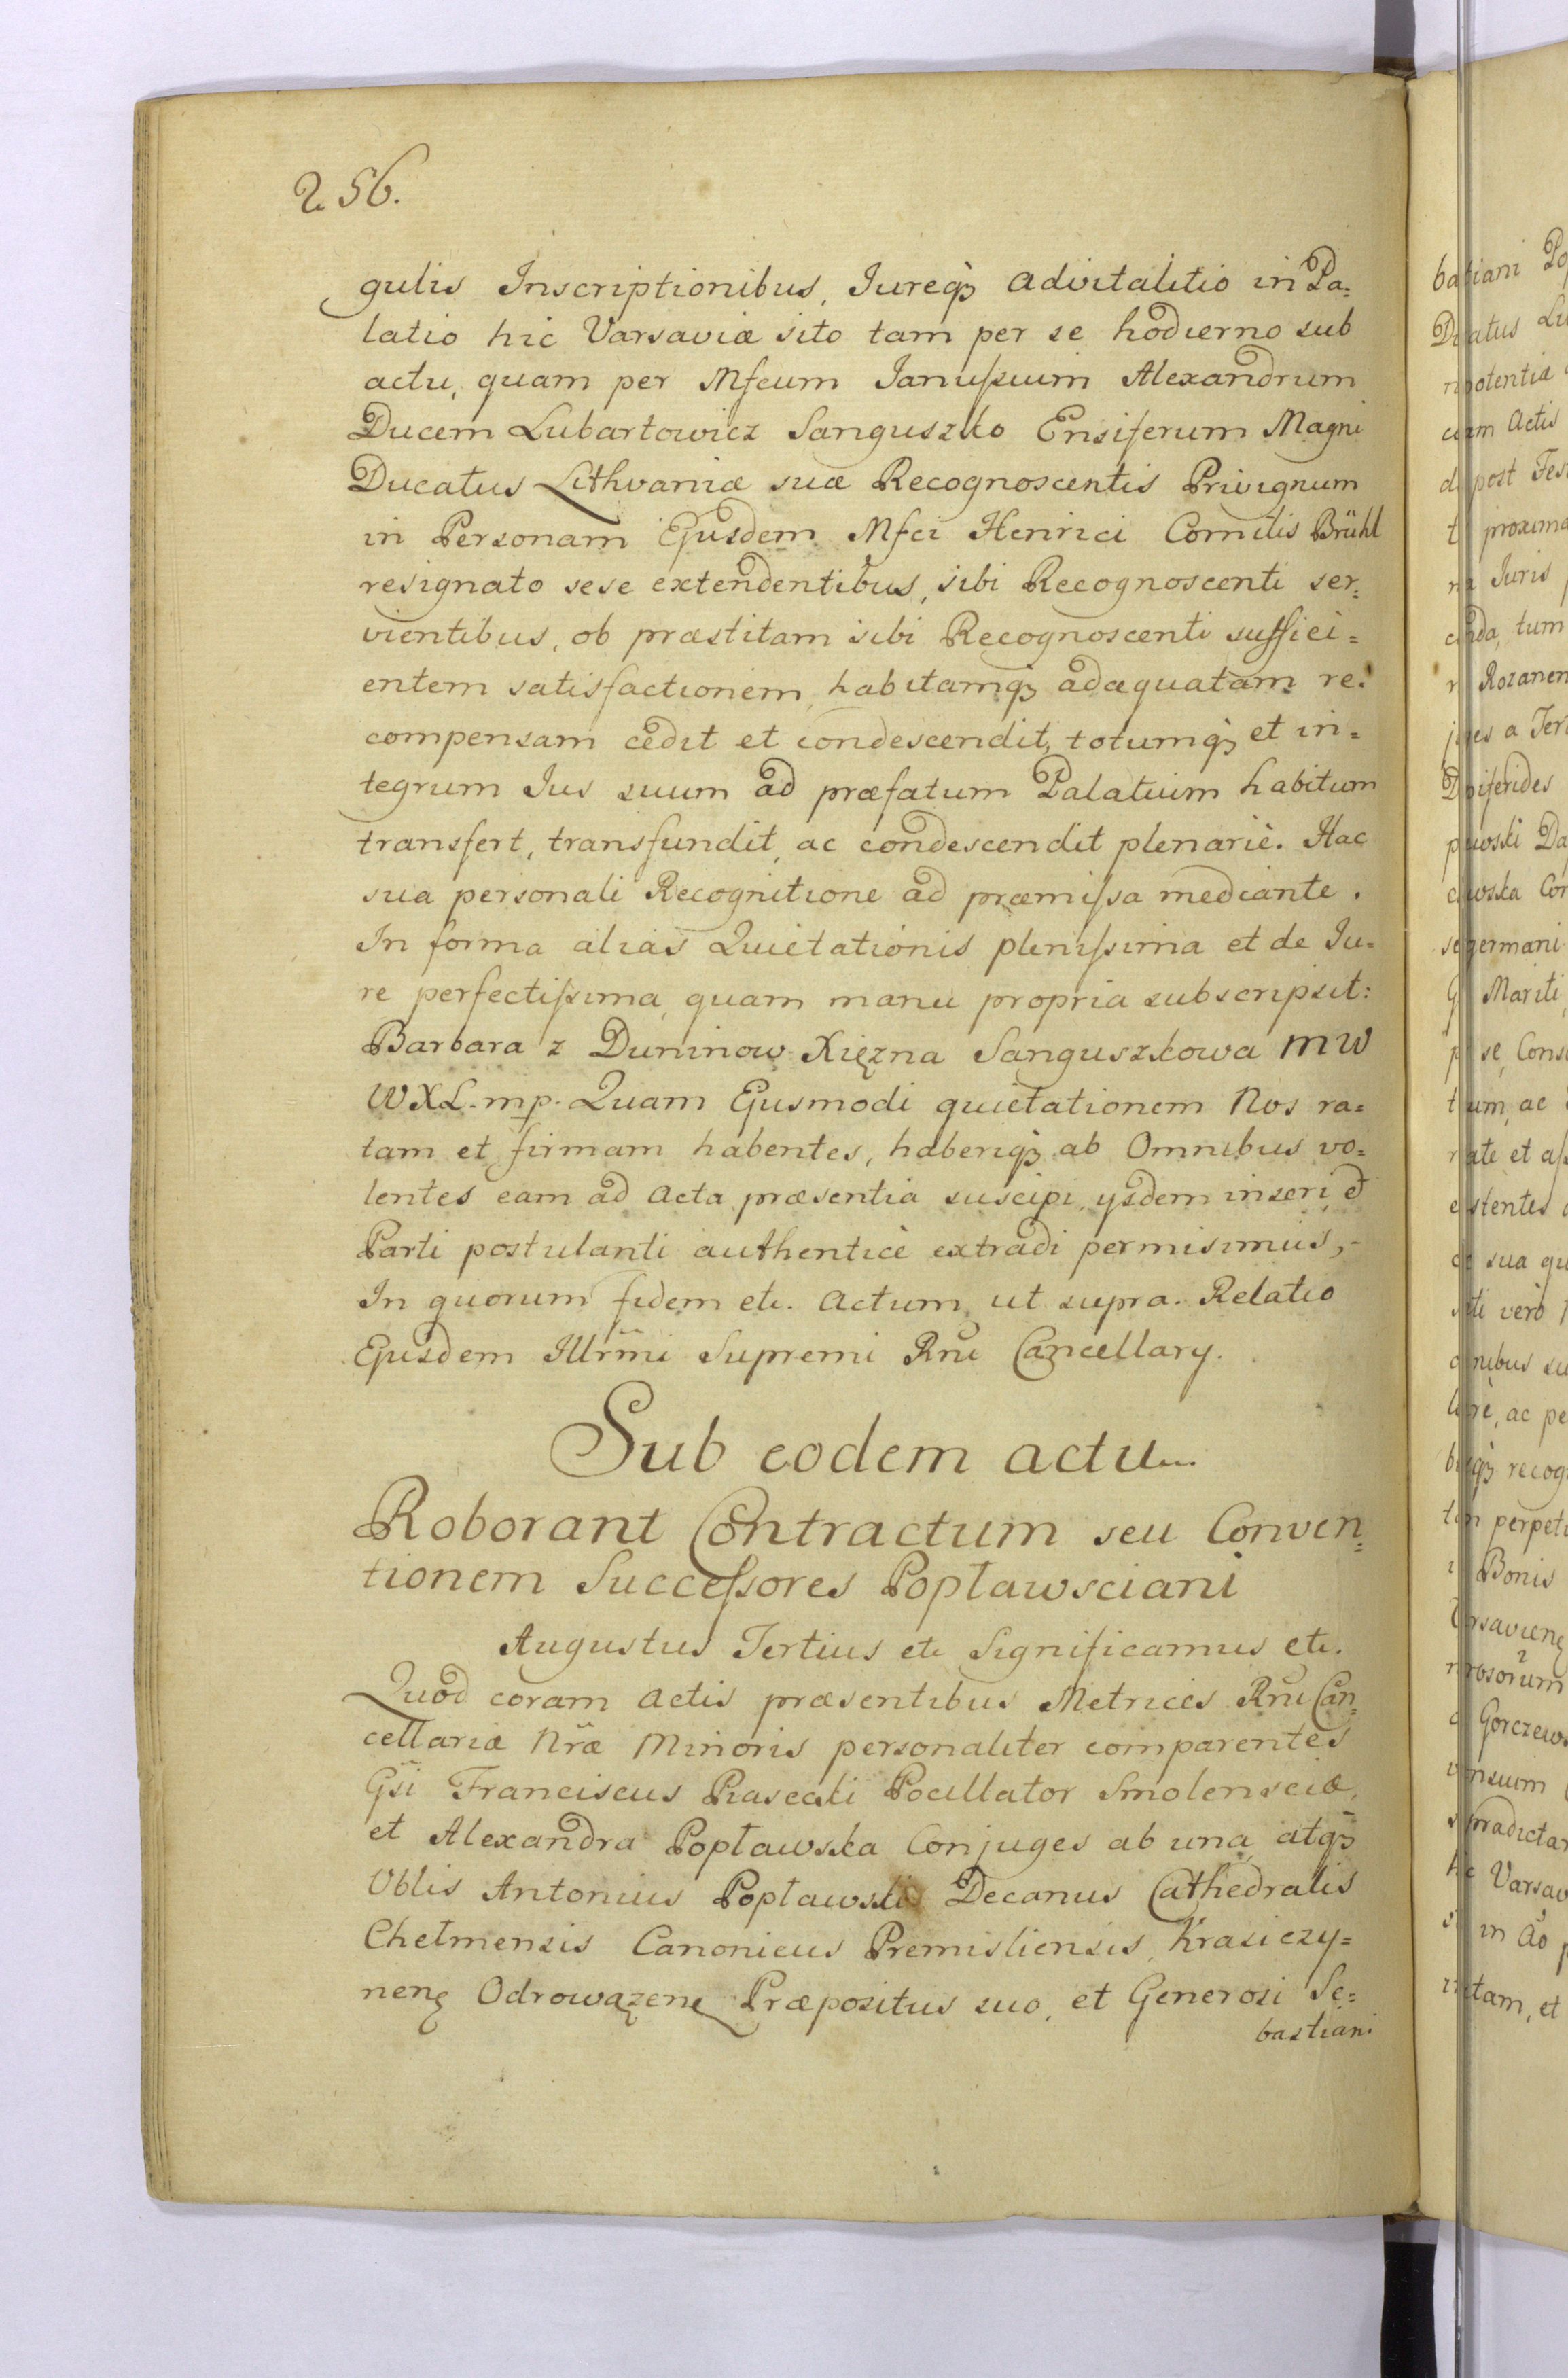 256.
gulis Inscriptionibus, Iureqꝫ advitalitio in Pa=
latio hic Varsaviæ sito tam per se hodierno sub
actu, quam per Mfcum Ianuſsium Alexandrum
Ducem Lubartowicz Sanguszko Ensiferum Magni
Ducatus Lithvaniæ suæ Recognoscentis Privignum
in Personam Ejusdem Mfci Henrici Comitis Brühl
resignato sese extendentibus, sibi Recognoscenti ser=
vientibus, ob præstitam sibi Recognoscenti suffici=
entem satisfactionem, habitamqꝫ adæquatam re=
compensam cedit et condescendit, totumqꝫ et in=
tegrum Jus suum ad præfatum Palatium habitum
transfert, transfundit, ac condescendit plenariè. Hac
sua personali Recognitione ad præmiſsa mediante.
In forma alias Quietationis pleniſsima et de Ju=
re perfectiſsima, quam manu propria subscripsit:
Barbara z Duninow Xięzna Sanguszkowa MW
WXL. mp. Quam Ejusmodi quietationem Nos ra=
tam et firmam habentes, haberiqꝫ ab Omnibus vo=
lentes eam ad Acta præsentia suscipi, ysdem inseri, et
Parti postulanti authenticè extradi permisimus,-
In quorum fidem etc. Actum ut supra. Relatio
Ejusdem Illrm̃i Supremi Rñi Cancellary.
Sub eodem actu
Roborant Contractum seu Conven=
tionem Succeſsores Popławsciani
Augustus Tertius etc Significamus etc.
Quod coram Actis præsentibus Metrices Rñi Can=
cellariæ Nr̃æ Minoris personaliter comparentes
Gsi Franciscus Piascali Pocillator Smolensciæ,
et Alexandra Popławska Conjuges ab una, atqꝫ
Vblis Antonius Popławski Decanus Cathedralis
Chełmensis Canonicus Premisliensis, Krasiczy=
nenę Odrowązenę Præpositus suo, et Generosi Se=
bastiani